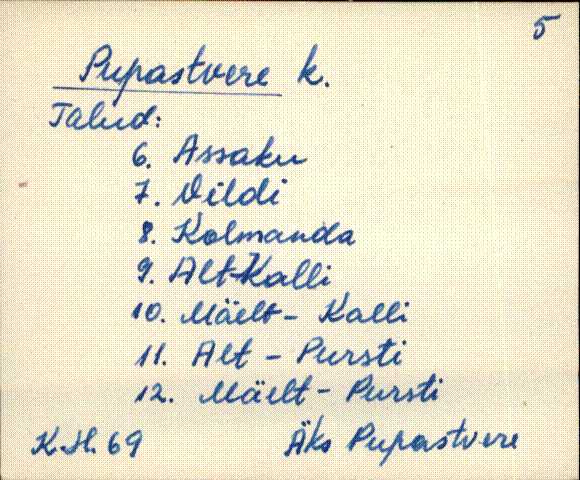 5
Pupastvere k.
Talud:
6. Assaku
7. Vildi
8. Kolmanda
9. Alt-Kalli
10. Mäelt - Kalli
11. Alt - Pursti
12. Mäelt - Pursti
K.H. 69 Äks Pupastvere